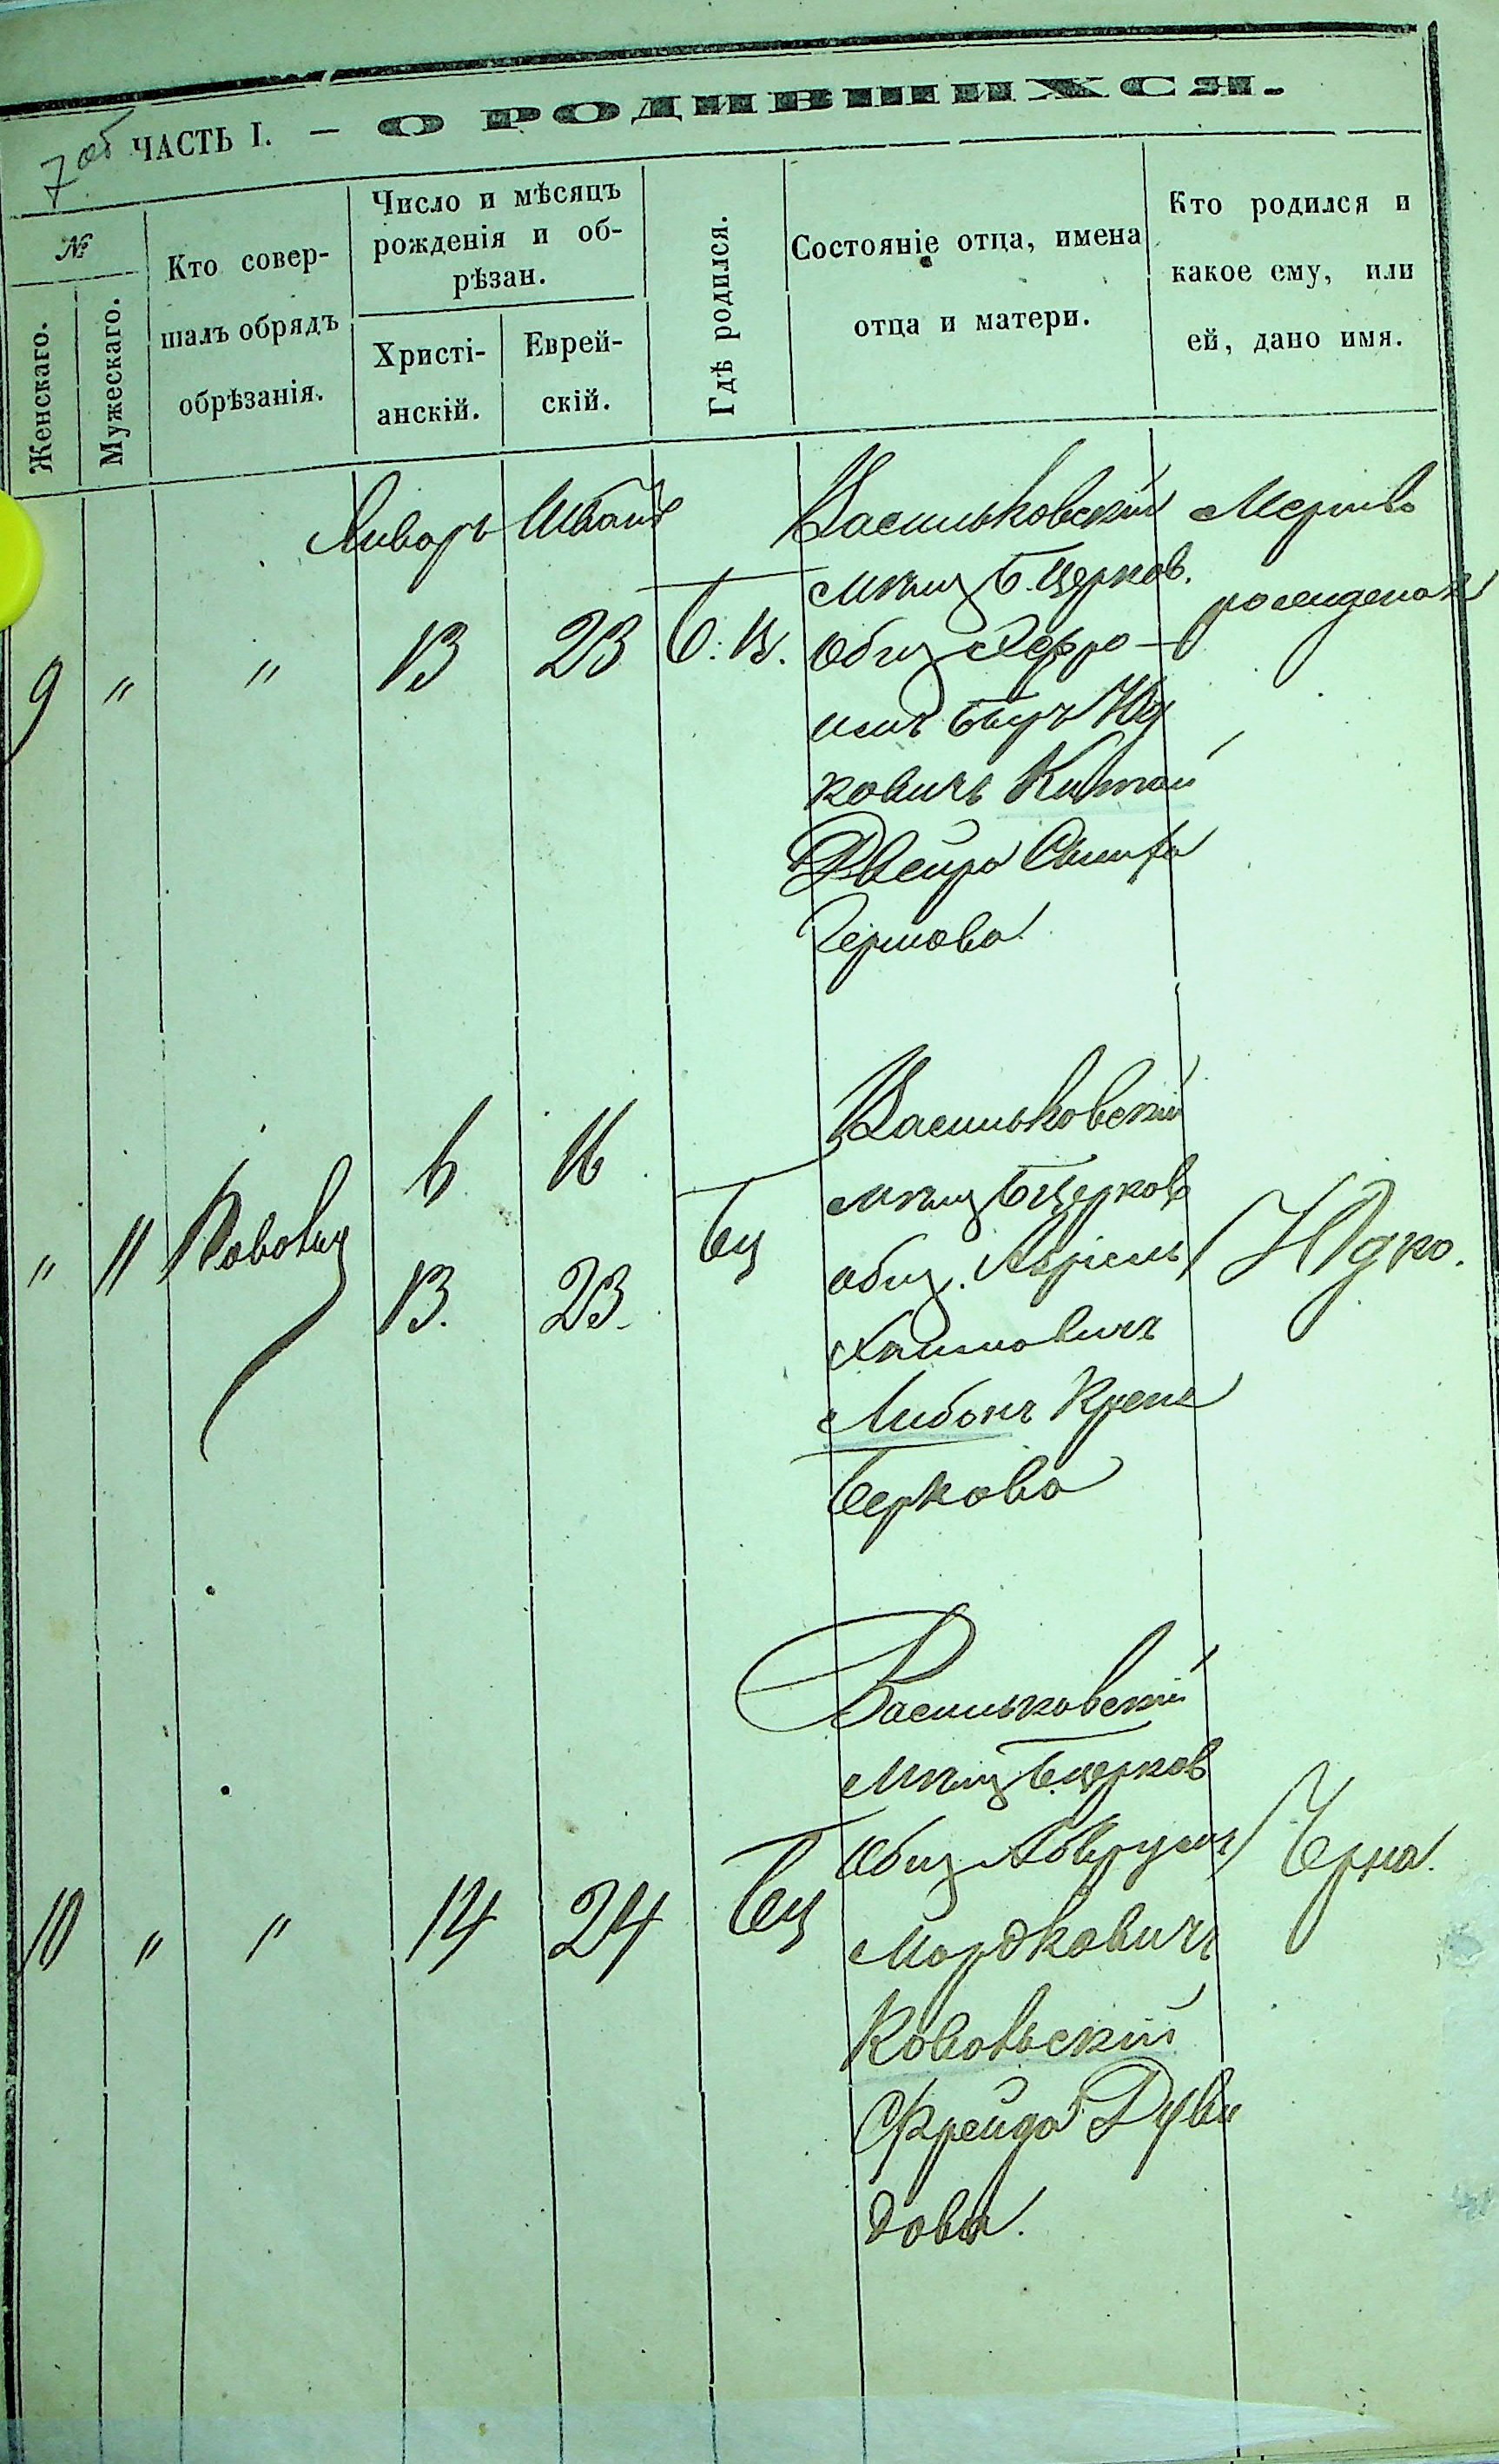 7об ЧАСТЬ I. — О РОДИВШИХСЯ.
№
Женскаго.
Мужескаго.
Кто совер-
шалъ обрядъ
обрѣзанія.
Число и мѣсяцъ
рожденія и об-
рѣзан.
Христі-
анскій.
Еврей-
скій.
Гдѣ родился.
Состояніе отца, имена
отца и матери.
Кто родился и
какое ему, или
ей, дано имя.
Январь Шватъ
9 " " 13 23 Б. Ц.
Васильковскій
мѣщ Б. Церков.
общ
Ку
ковичъ Китай
Двейра
Гершова
Мертво
рожденная
" 11 6 16 Бц
13. 23.
Васильковскій
мѣщ БЦерков
общ.
Хаимовичъ
Крейна
Беркова
Юдко.
10 " " 14 24 Бц
Васильковскій
мѣщ Бцерков
общ Абврумъ
Мордковичъ
Фрейда Дуви
дова.
Черна.